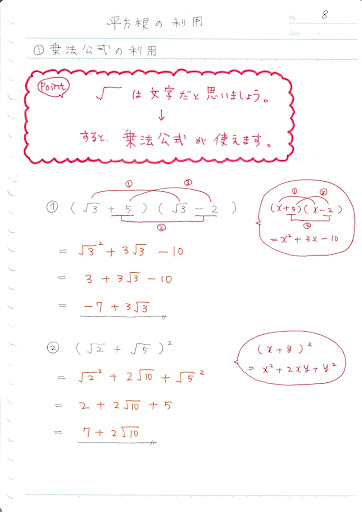 平方根の利用
No 8
Date
① 乗法公式の利用
Point
√ は文字だと思いましょう。
↓
すると、乗法公式が使えます。
① ② ③
① (√3 + 5)(√3 - 2)
= √3² + 3√3 - 10
= 3 + 3√3 - 10
= -7 + 3√3
① ②
(x+5)(x-2)
③
= x² + 3x - 10
② (√2 + √5)²
= √2² + 2√10 + √5²
= 2 + 2√10 + 5
= 7 + 2√10
(x + y)²
= x² + 2xy + y²